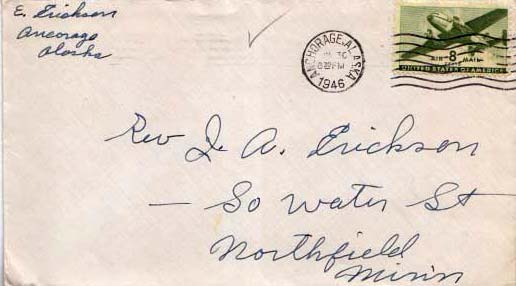 E. Erickson
Ancorago
Alaska
ANCHORAGE, ALASKA
30
PM
1946
AIR 8 MAIL
UNITED STATES OF AMERICA
Rev J. A. Erickson
— So Water St
Northfield
Minn